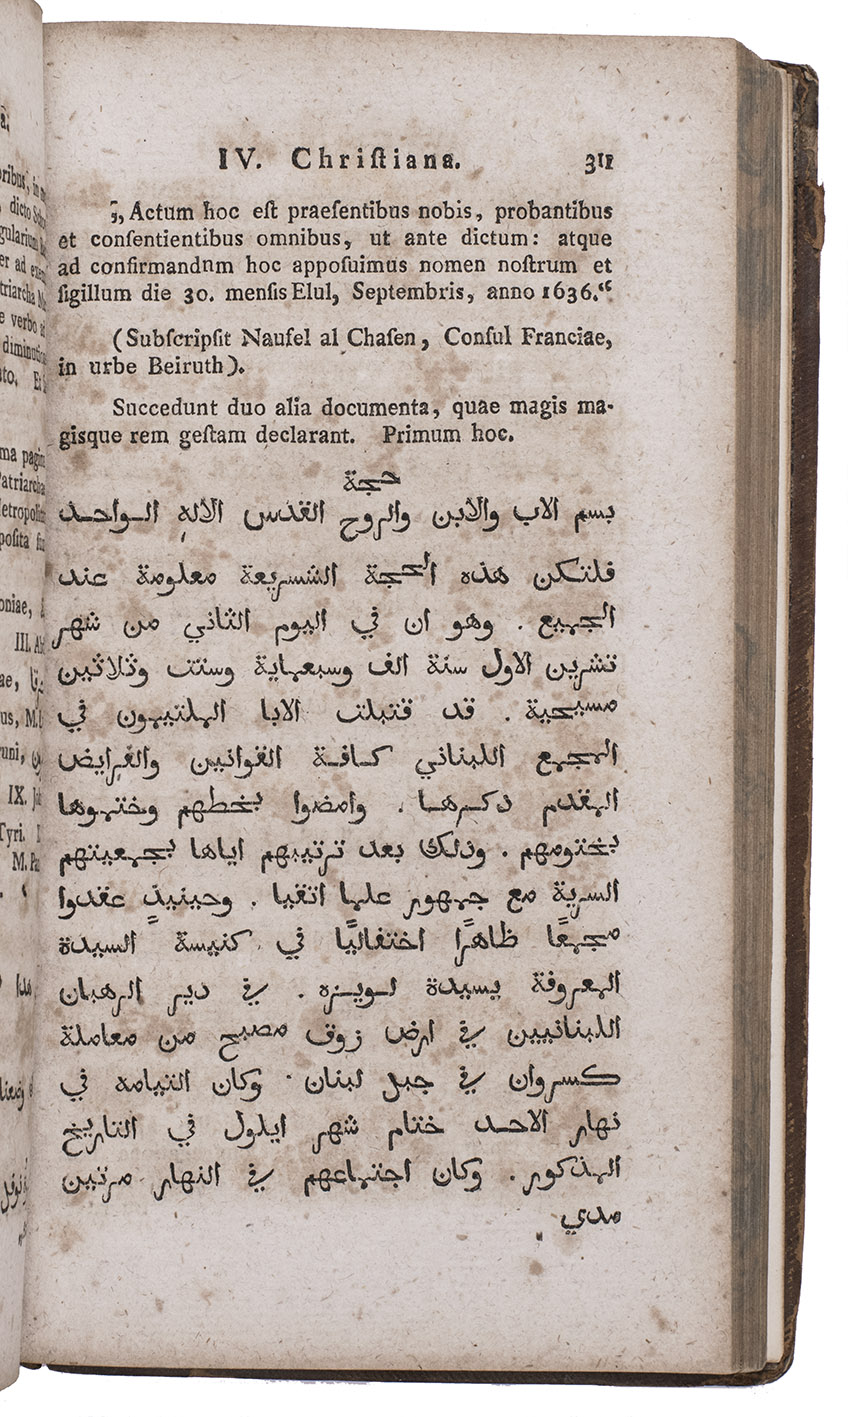 IV. Chriſtiana. 311
„Actum hoc eſt praeſentibus nobis, probantibus
et conſentientibus omnibus, ut ante dictum: atque
ad confirmandnm hoc appoſuimus nomen noſtrum et
ſigillum die 30. menſis Elul, Septembris, anno 1636.“
(Subſcripſit Naufel al Chaſen, Conſul Franciae,
in urbe Beiruth).
Succedunt duo alia documenta, quae magis ma-
gisque rem geſtam declarant. Primum hoc.
حجة
بسم الاب والابن والروح القدس الاله الواحد
فلتكن هذه الحجة الشسريعة معلومة عند
الجميع . وهو ان في اليوم الثاني من شهر
تشرين الاول سنة الف وسبعماية وستت وثلاثين
مسيحية . قد قتبلت الابا الملتيمون في
المجمع اللبناني كافة القوانين والفرايض
المقدم ذكرها . وامضوا بخطهم وختموها
بختومهم . وذلك بعد ترتيبهم اياها بجمعيتهم
السرية مع جمهور علما اتقيا . وحينيذٍ عقدوا
مجمعًا ظاهرًا اختفاليًا في كنيسة السيدة
المعروفة بسيدة لويزه . في دير الرهبان
اللبنانيين في ارض زوق مصبح من معاملة
كسروان في جبل لبنان . وكان التيامه في
نهار الاحد ختام شهر ايلول في التاريخ
المذكور . وكان اجتماعهم في النهار مرتين
مدي